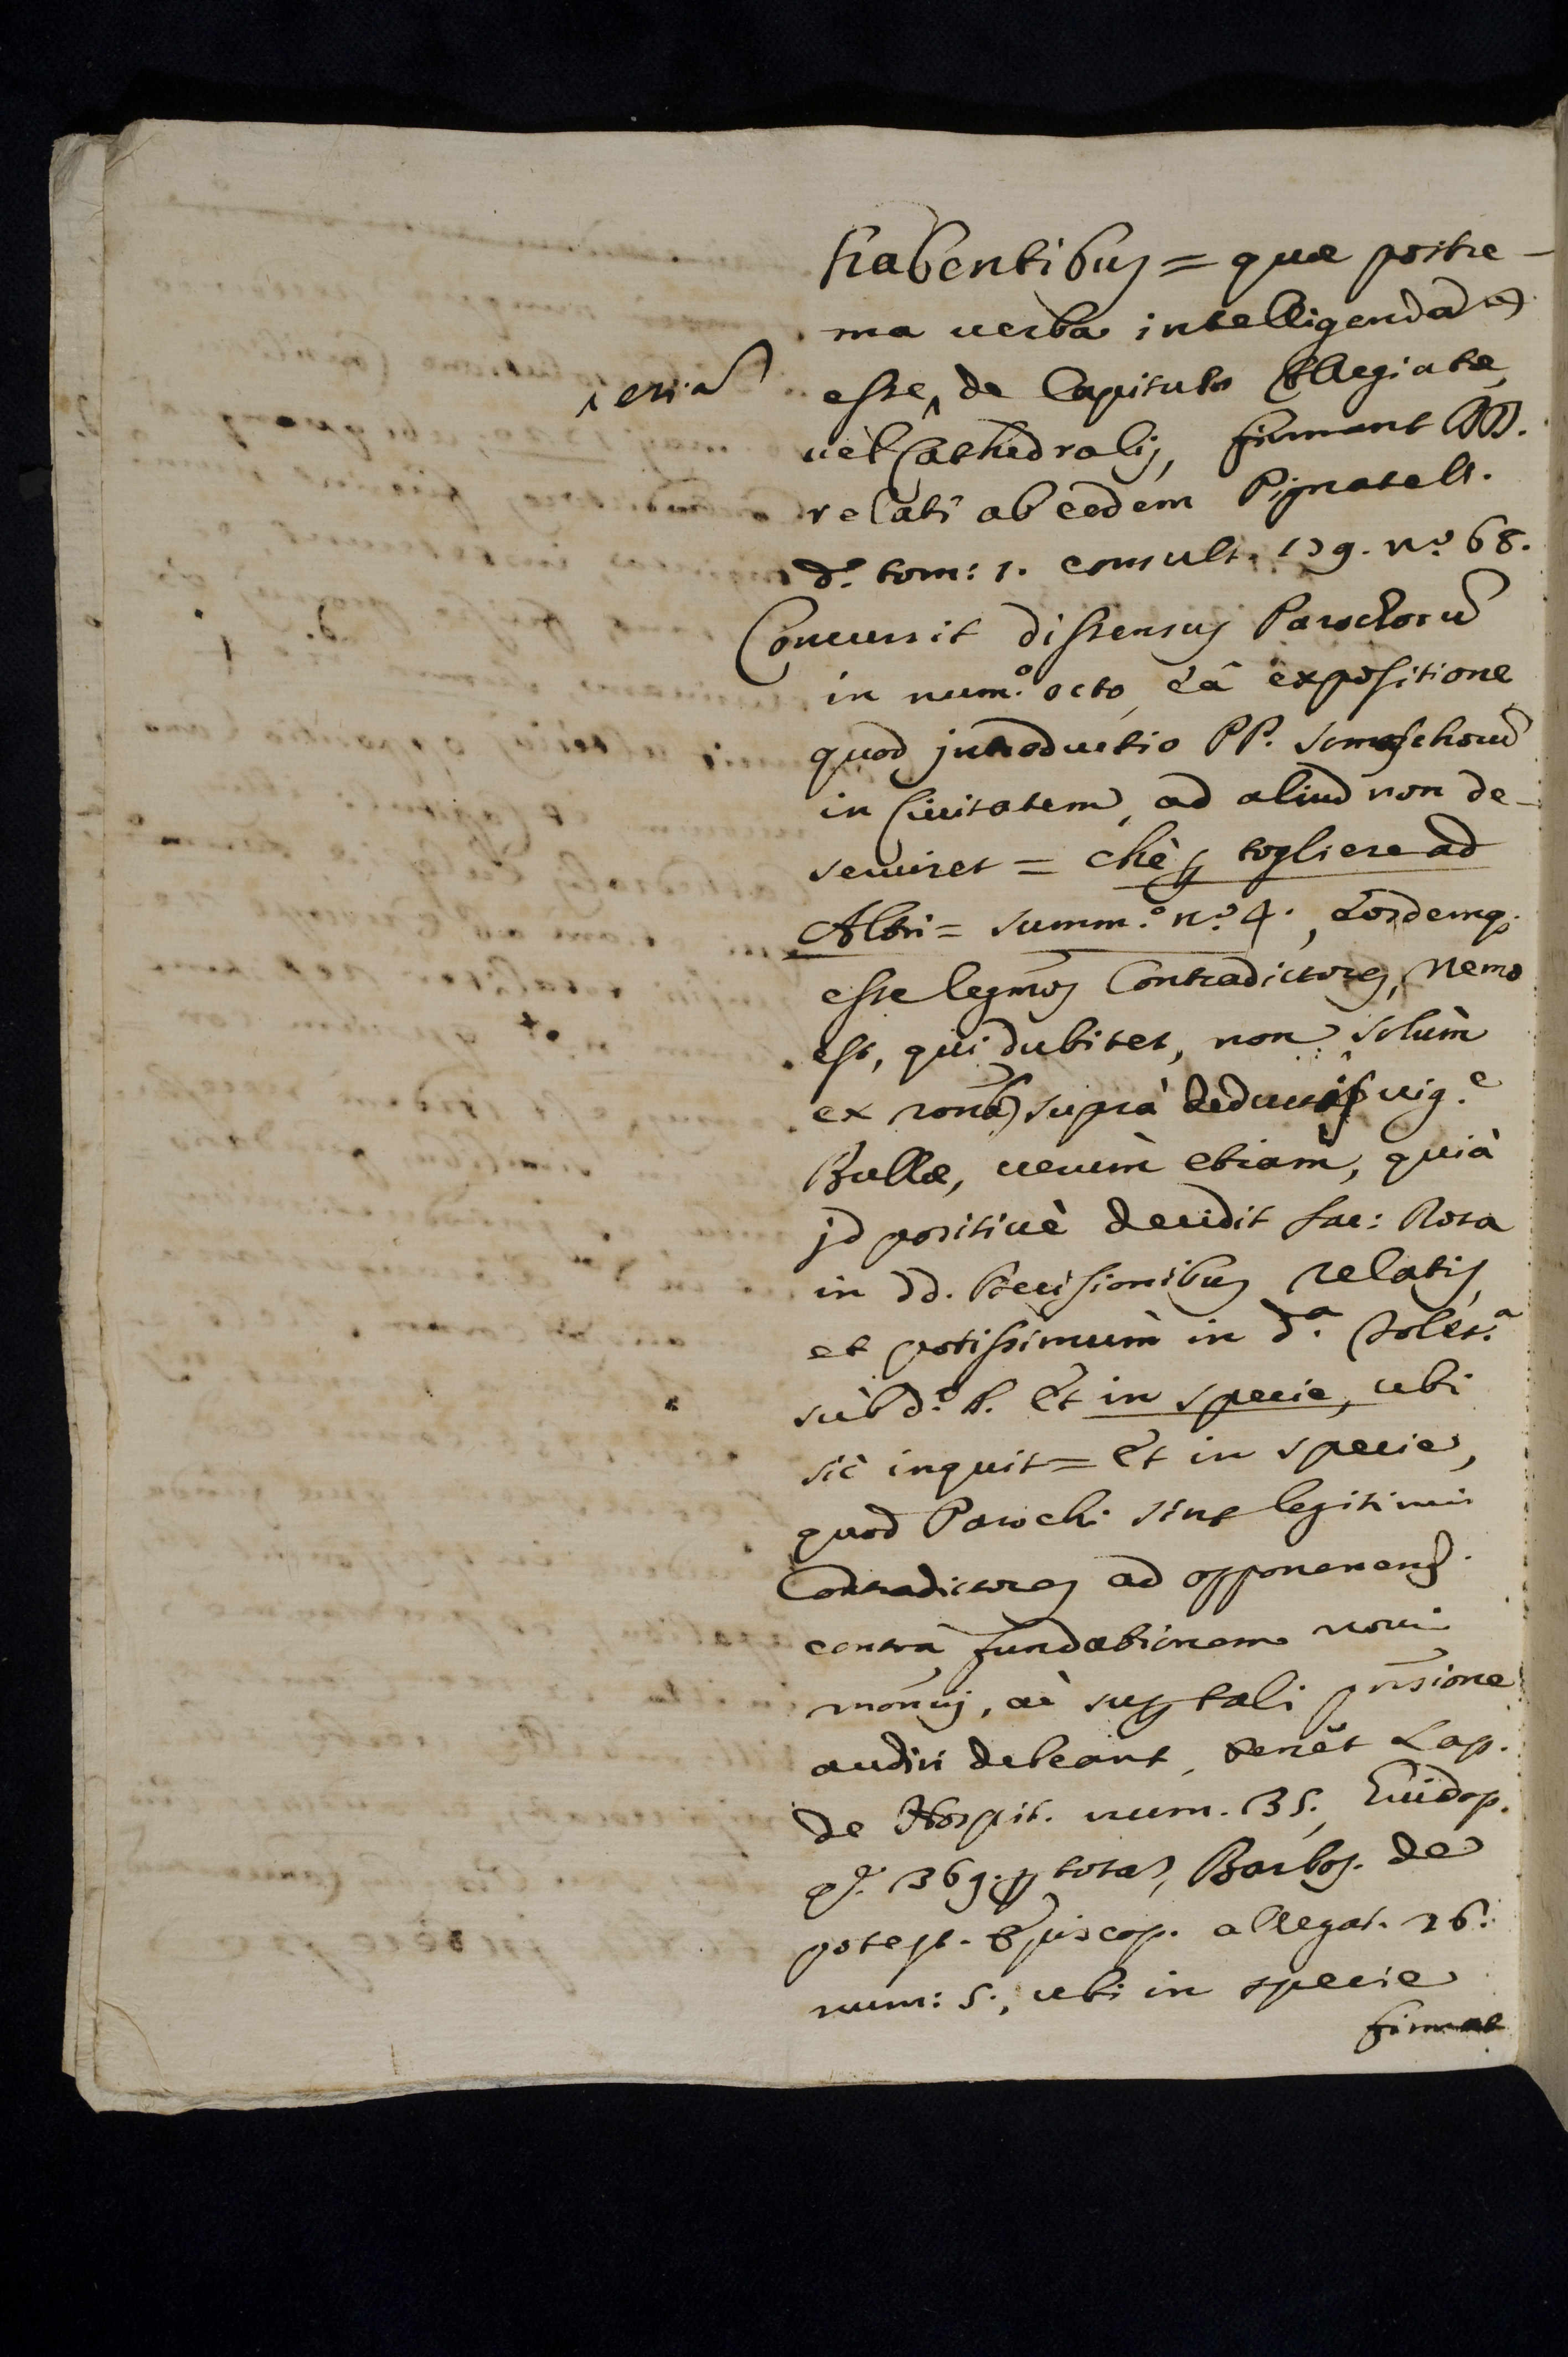 habentibus = quæ postre-
ma verba intelligenda
etiã
esse, de Capitulo Collegiatæ,
vèl Cathedralis, firmant DD.
relati ab eodem Pignatell.
d.º tom: 1. consult. 179. n.º 68.
Concurrit dissensus Parochorũ
in num.º octo, eâ expositione
quod introductio PP. Somaschorũ
in Civitatem, ad aliud non de-
serviret = chè p togliere ad
Altri = summ.º n.º 4., Eosdemq.
esse legmos Contradictores, nemo
est, qui dubitet, non solùm
ex ronibs suprà deductis vig.e
Bullæ, verùm etiàm, quià
jd positivè decidit Sac: Rota
in dd. Decisionibus relatis,
et potissimùm in d.a Tolet.a
sùb d.º §. Et in specie, ubi
sic inquit = Et in specie,
quod Parochi sint legitimi
Contradictores ad opponend.
contrà fundationem novi
monrij, ac sup tali pnsione
audiri debeant, tenet Lap.
de Hospit. num. 35., Guidop.
q. 369. p totã, Barbos. de
potest. Episcop. allegat. 26.
num: 5., ubi in specie
firmat